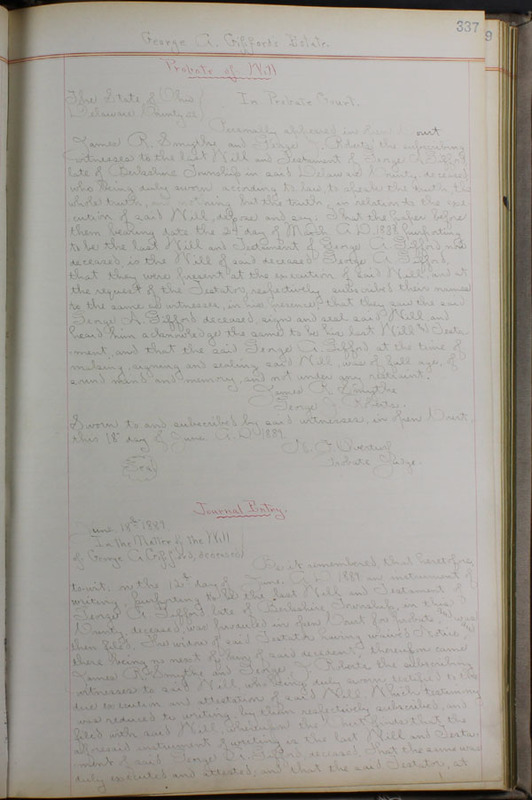 337
9
George A. Gifford's Estate.
Probate of Will
The State of Ohio
Delaware County, ss
In Probate Court.
Personally appeared in open Court
James R. Smythe and George J. Roberts the subscribing
witnesses to the last Will and Testament of George A. Gifford
late of Berkshire Township in said Delaware County, deceased
who being duly sworn according to law, to speak the truth the
whole truth, and nothing but the truth, in relation to the exe-
cution of said Will, depose and say: That the paper before
them bearing date the 24 day of March A.D. 1888 purporting
to be the last Will and Testament of George A. Gifford now
deceased is the Will of said deceased George A. Gifford,
that they were present at the execution of said Will, and at
the request of the Testator, respectively subscribed their names
to the same as witnesses, in his presence, that they saw the said
George A. Gifford deceased, sign and seal said Will, and
heard him acknowledge the same to be his last Will & Testa-
ment, and that the said George A. Gifford at the time of
making, signing and sealing said Will, was of full age, of
sound mind and memory, and not under any restraint.
James R. Smythe
George J.
Sworn to and subscribed by said witnesses, in open Court,
this 18th day of June A.D. 1889.
Seal
Probate Judge.
Journal Entry.
June 18th 1889.
In the Matter of the Will
of George A. Gifford, deceased
Be it remembered, that heretofore
towit: on the day of June A.D. 1889 an instrument of
writing, purporting to be the last Will and Testament of
George A. Gifford late of Berkshire Township, in this
County, deceased, was produced in open Court for probate and was
then filed. The widow of said Testator having waived notice and
there being no next of kin of said deceased, thereupon came
James R. Smythe and George J. Roberts the subscribing
witnesses to said Will, who being duly sworn testified to the
due execution and attestation of said Will, Which testimony
was reduced to writing, by them respectively subscribed, and
filed with said Will, whereupon the Court finds that the
aforesaid instrument of writing is the last Will and Testa-
ment of said George A. Gifford deceased that the same was
duly executed and attested, and that the said Testator, at